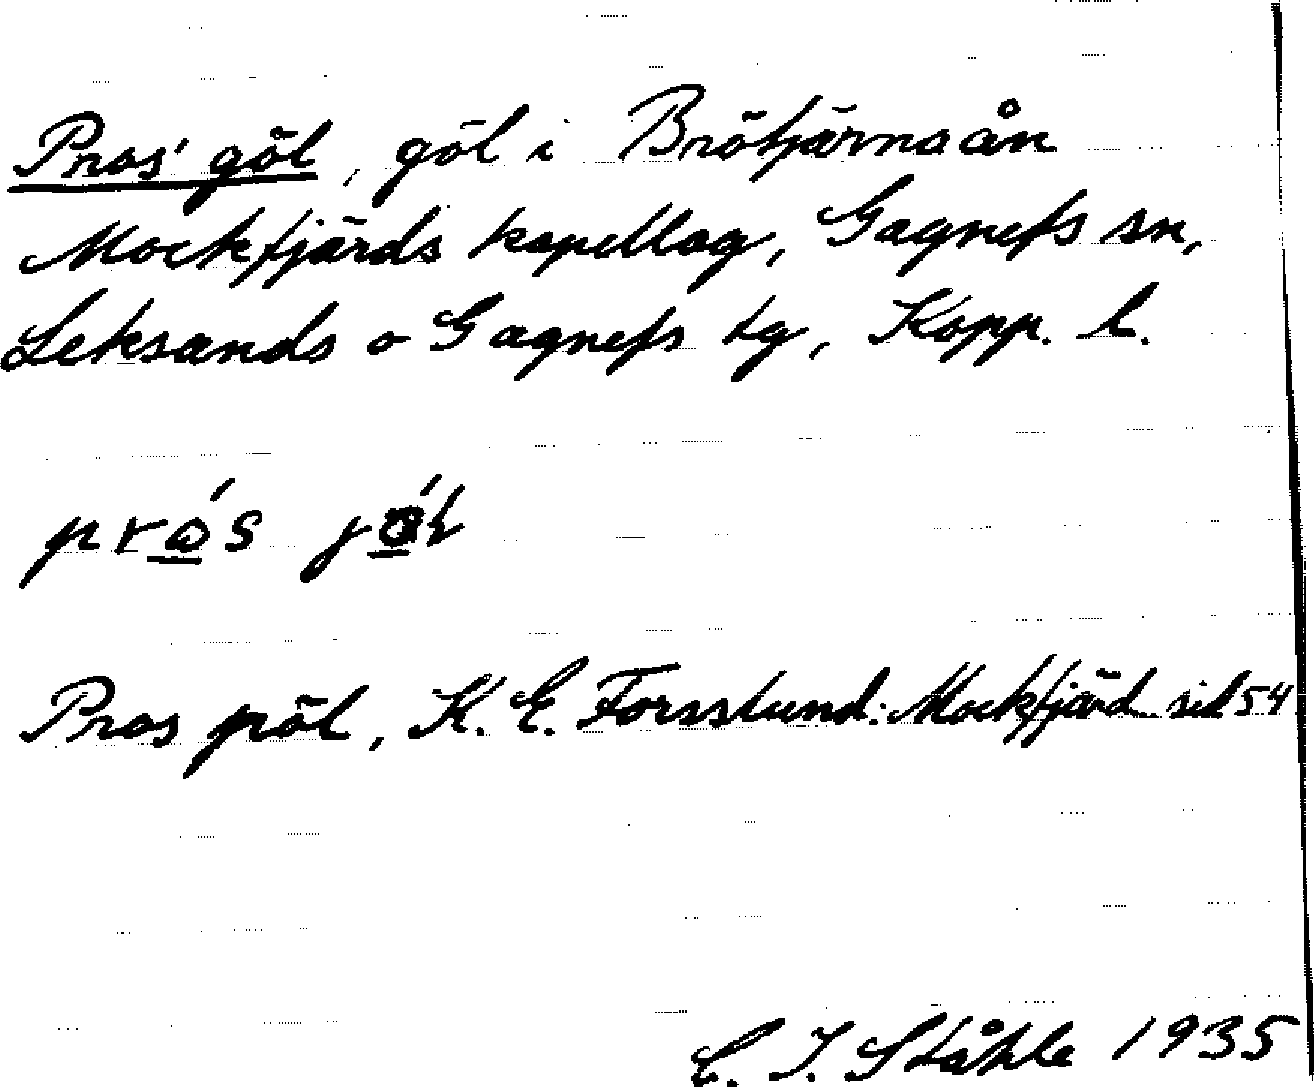 Pros' göl, göl i Brötjärnaån
Mockfjärds kapellag, Gagnefs sn,
Leksands o Gagnefs tg, Kopp. l.
Pros pöl, K. E. Forsslund: Mockfjärd sid 54
C. I. Ståhle 1935